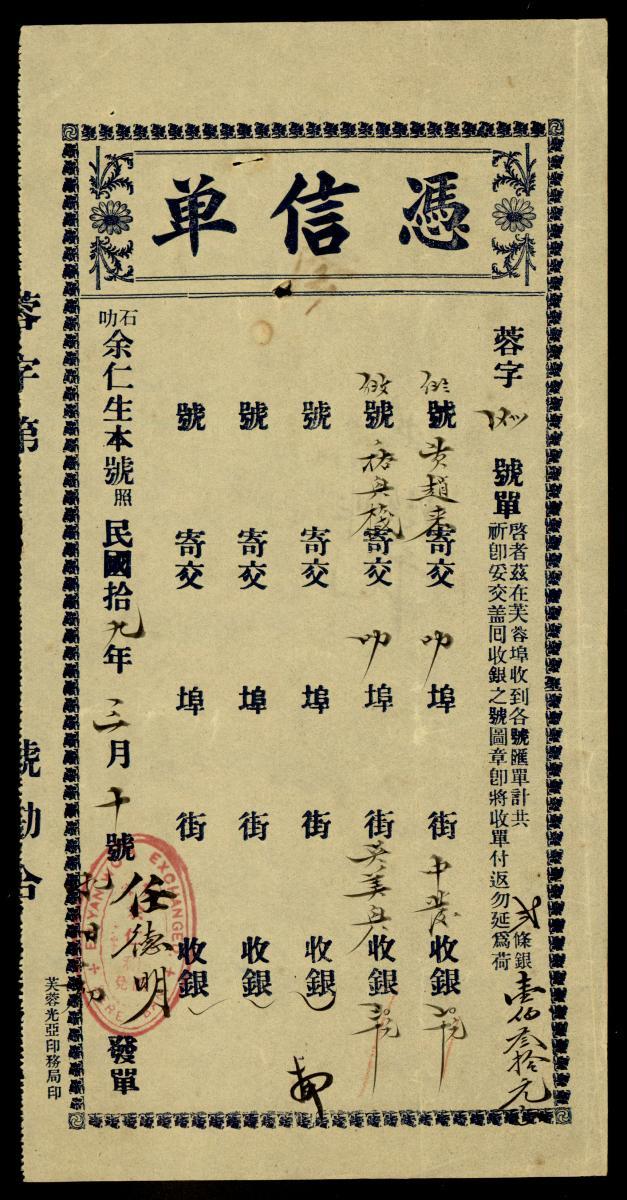 憑信单
蓉字 號單
啓者茲在芙蓉埠收到各號匯單計共 弍 條銀 壹佰叁拾元
祈卽妥交盖囘收銀之號圖章卽將收單付返勿延爲荷
號 黄趙来 寄交 叻 埠 街 中 收銀
號 寄交 叻 埠 街 吴美兴 收銀
號 寄交 埠 街 收銀
號 寄交 埠 街 收銀
號 寄交 埠 街 收銀
石叻 余仁生本號照 民國拾九年 三月十號 任德明 發單
EU YAN EXCHANGE
芙蓉光亞印務局印
蓉字第 號勘合